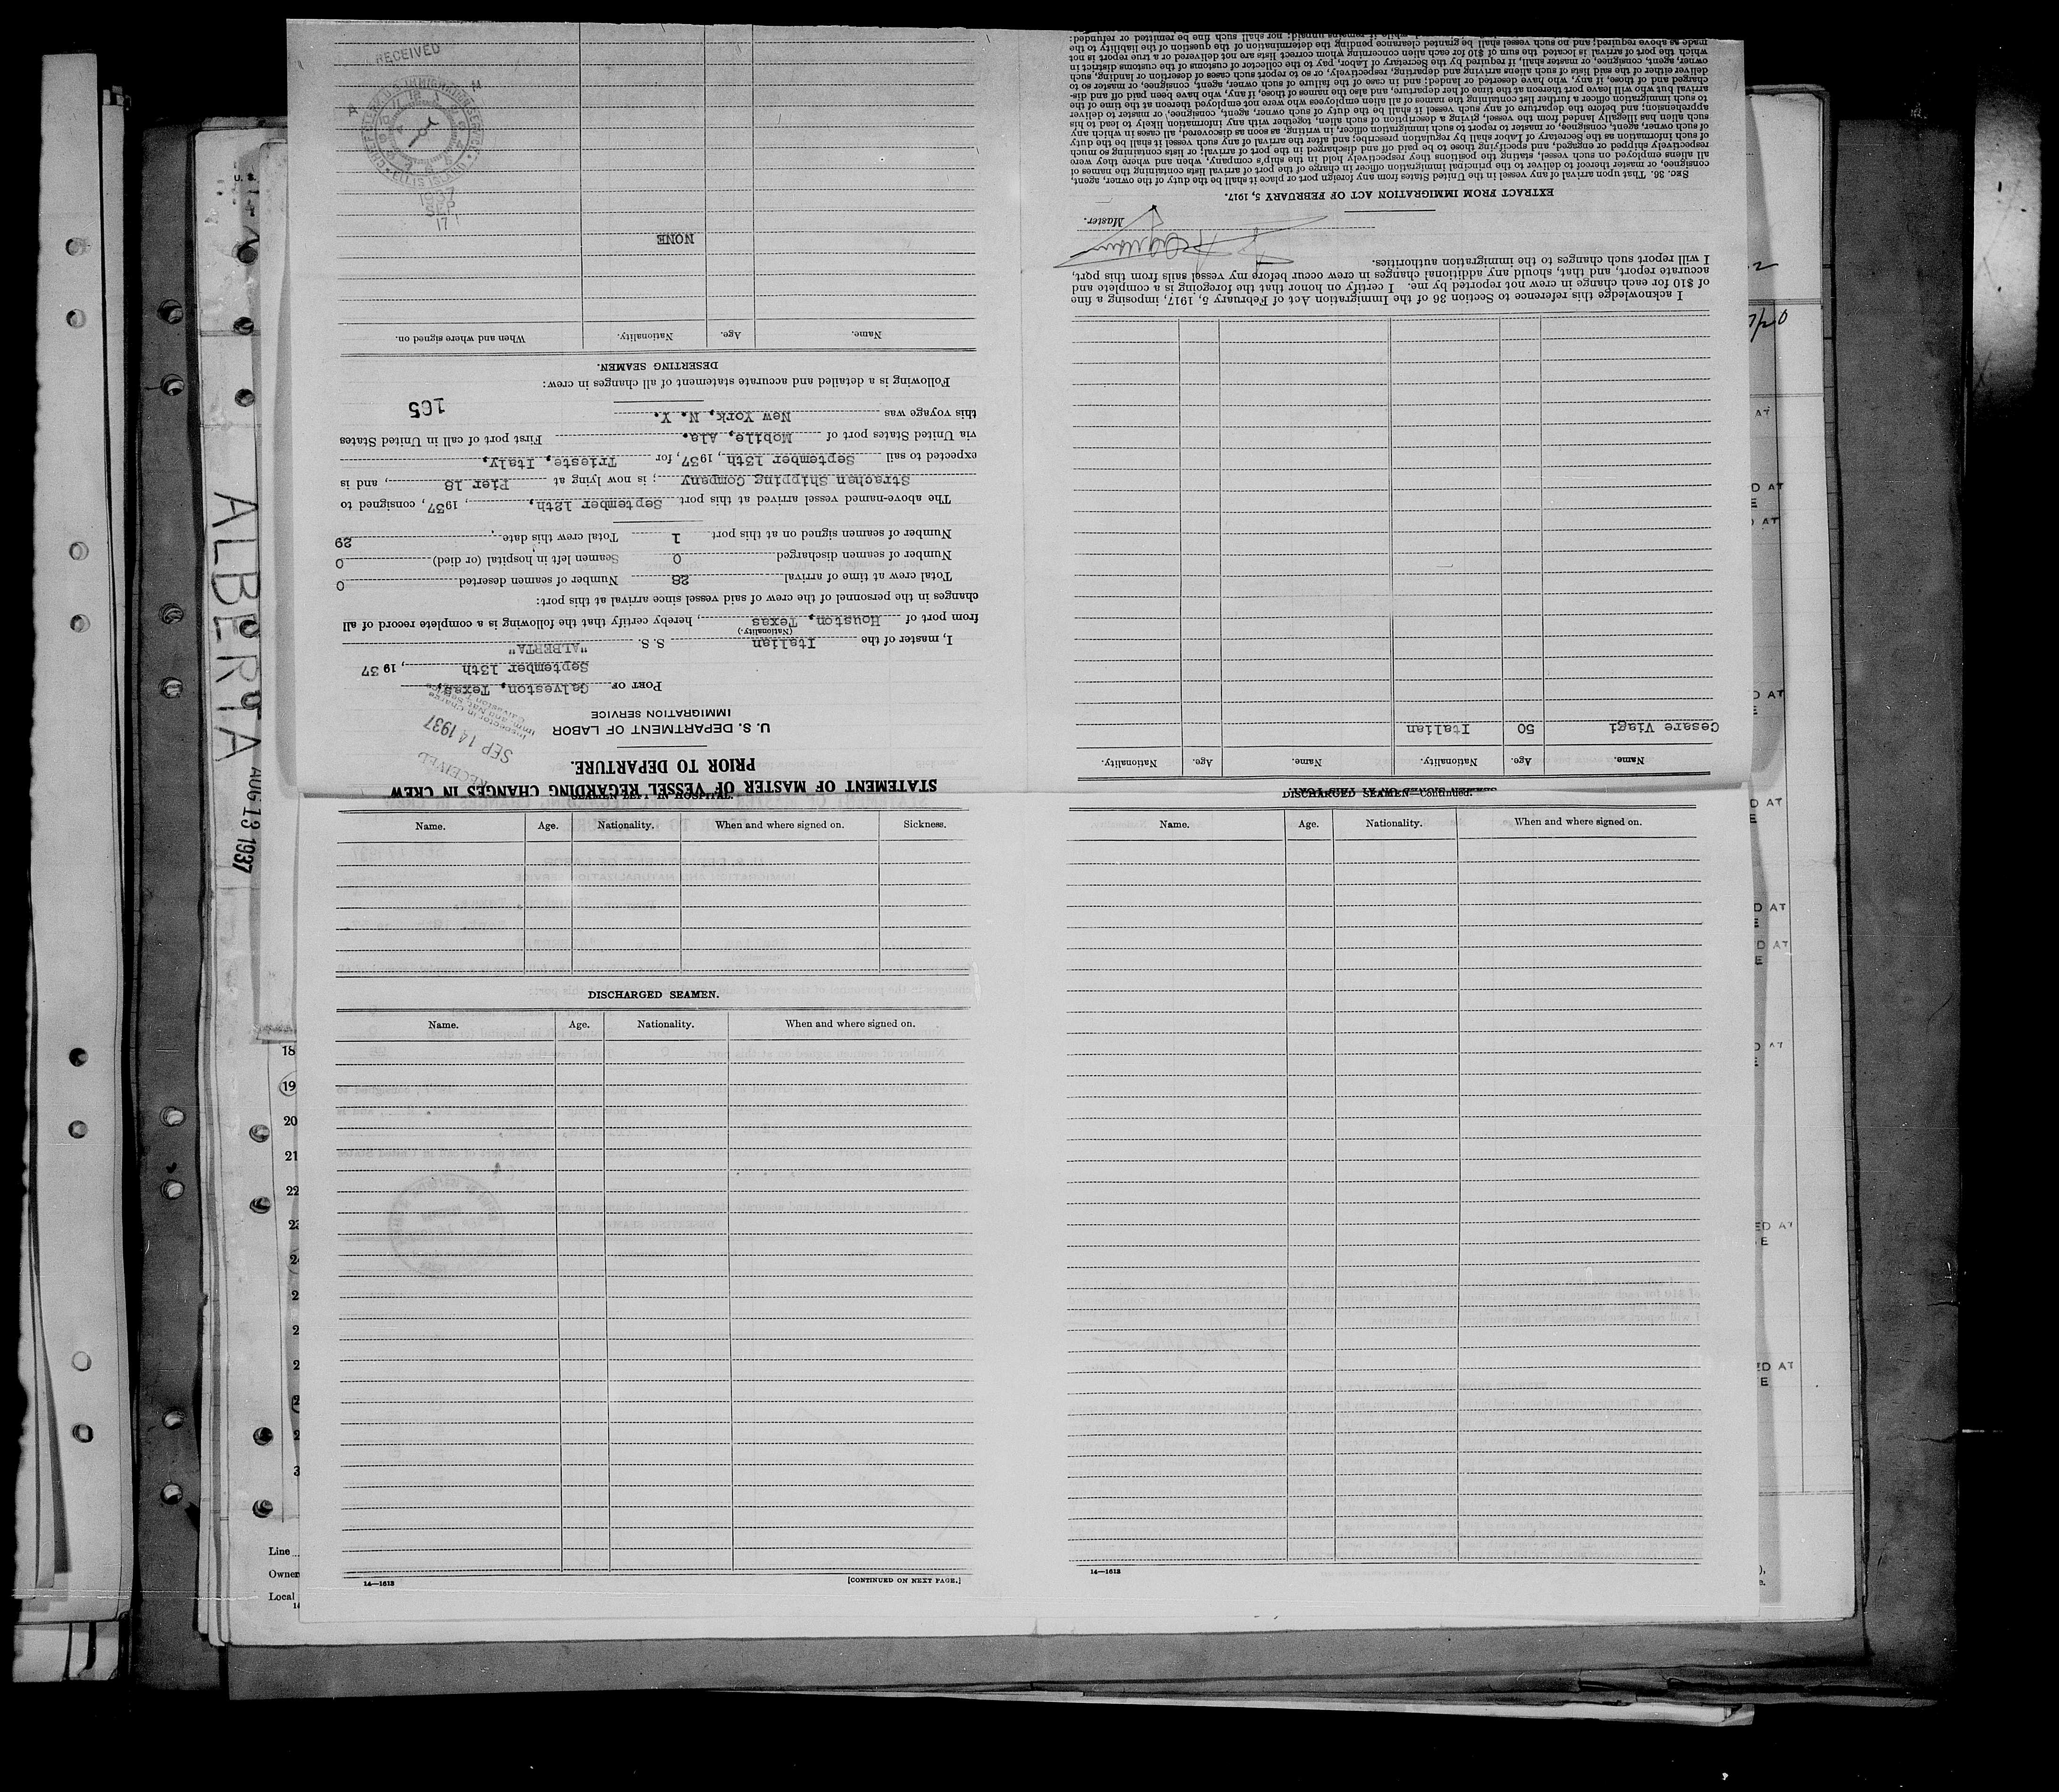 STATEMENT OF MASTER OF VESSEL REGARDING CHANGES IN CREW
PRIOR TO DEPARTURE.
U. S. DEPARTMENT OF LABOR
IMMIGRATION SERVICE
RECEIVED
SEP 14 1937
Inspector in Charge
PORT OF Galveston, Texas,
September 13th, 1937
I, master of the Italian S. S. "ALBERTA"
(Nationality.)
from port of Houston, Texas, hereby certify that the following is a complete record of all
changes in the personnel of the crew of said vessel since arrival at this port:
Total crew at time of arrival 28 Number of seamen deserted 0
Number of seamen discharged 0 Seamen left in hospital (or died) 0
Number of seamen signed on at this port 1 Total crew this date 29
The above-named vessel arrived at this port September 12th, 1937, consigned to
Strachan Shipping Company; is now lying at Pier 18, and is
expected to sail September 13th, 1937, for Trieste, Italy,
via United States port of Mobile, Ala. First port of call in United States
this voyage was New York, N. Y.
165
Following is a detailed and accurate statement of all changes in crew:
DESERTING SEAMEN.
Name. Age. Nationality. When and where signed on.
NONE
17
SEP
1937
ELLIS ISLAND
U.S. IMMIGRATION SERVICE
RECEIVED
Name. Age. Nationality. Name. Age. Nationality.
Cesare Viagi 50 Italian
I acknowledge this reference to Section 36 of the Immigration Act of February 5, 1917, imposing a fine
of $10 for each change in crew not reported by me. I certify on honor that the foregoing is a complete and
accurate report, and that, should any additional changes in crew occur before my vessel sails from this port,
I will report such changes to the immigration authorities.
Master.
EXTRACT FROM IMMIGRATION ACT OF FEBRUARY 5, 1917.
SEC. 36. That upon arrival of any vessel in the United States from any foreign port or place it shall be the duty of the owner, agent,
consignee, or master thereof to deliver to the principal immigration officer in charge of the port of arrival lists containing the names of
all aliens employed on such vessel, stating the positions they respectively hold in the ship's company, when and where they were
respectively shipped or engaged, and specifying those to be paid off and discharged in the port of arrival; or lists containing so much
of such information as the Secretary of Labor shall by regulation prescribe; and after the arrival of any such vessel it shall be the duty
of such owner, agent, consignee, or master to report to such immigration officer, in writing, as soon as discovered, all cases in which any
such alien has illegally landed from the vessel, giving a description of such alien, together with any information likely to lead to his
apprehension; and before the departure of any such vessel it shall be the duty of such owner, agent, consignee, or master to deliver
to such immigration officer a further list containing the names of all alien employees who were not employed thereon at the time of the
arrival but who will leave port thereon at the time of her departure, and also the names of those, if any, who have been paid off and dis-
charged and of those, if any, who have deserted or landed; and in case of the failure of such owner, agent, consignee, or master so to
deliver either of the said lists of such aliens arriving and departing, respectively, or so to report such cases of desertion or landing, such
owner, agent, consignee, or master shall, if required by the Secretary of Labor, pay to the collector of customs of the customs district in
which the port of arrival is located the sum of $10 for each alien concerning whom correct lists are not delivered or a true report is not
made as above required; and no such vessel shall be granted clearance pending the determination of the question of the liability to the
while it remains unpaid; nor shall such fine be remitted or refunded:
ALBERTA
AUG 13 1937
SEAMEN LEFT IN HOSPITAL.
Name. Age. Nationality. When and where signed on. Sickness.
DISCHARGED SEAMEN.
Name. Age. Nationality. When and where signed on.
14—1613
[CONTINUED ON NEXT PAGE.]
DISCHARGED SEAMEN—Continued.
Name. Age. Nationality. When and where signed on.
14—1613
18
19
20
21
22
Line
Owner
Local